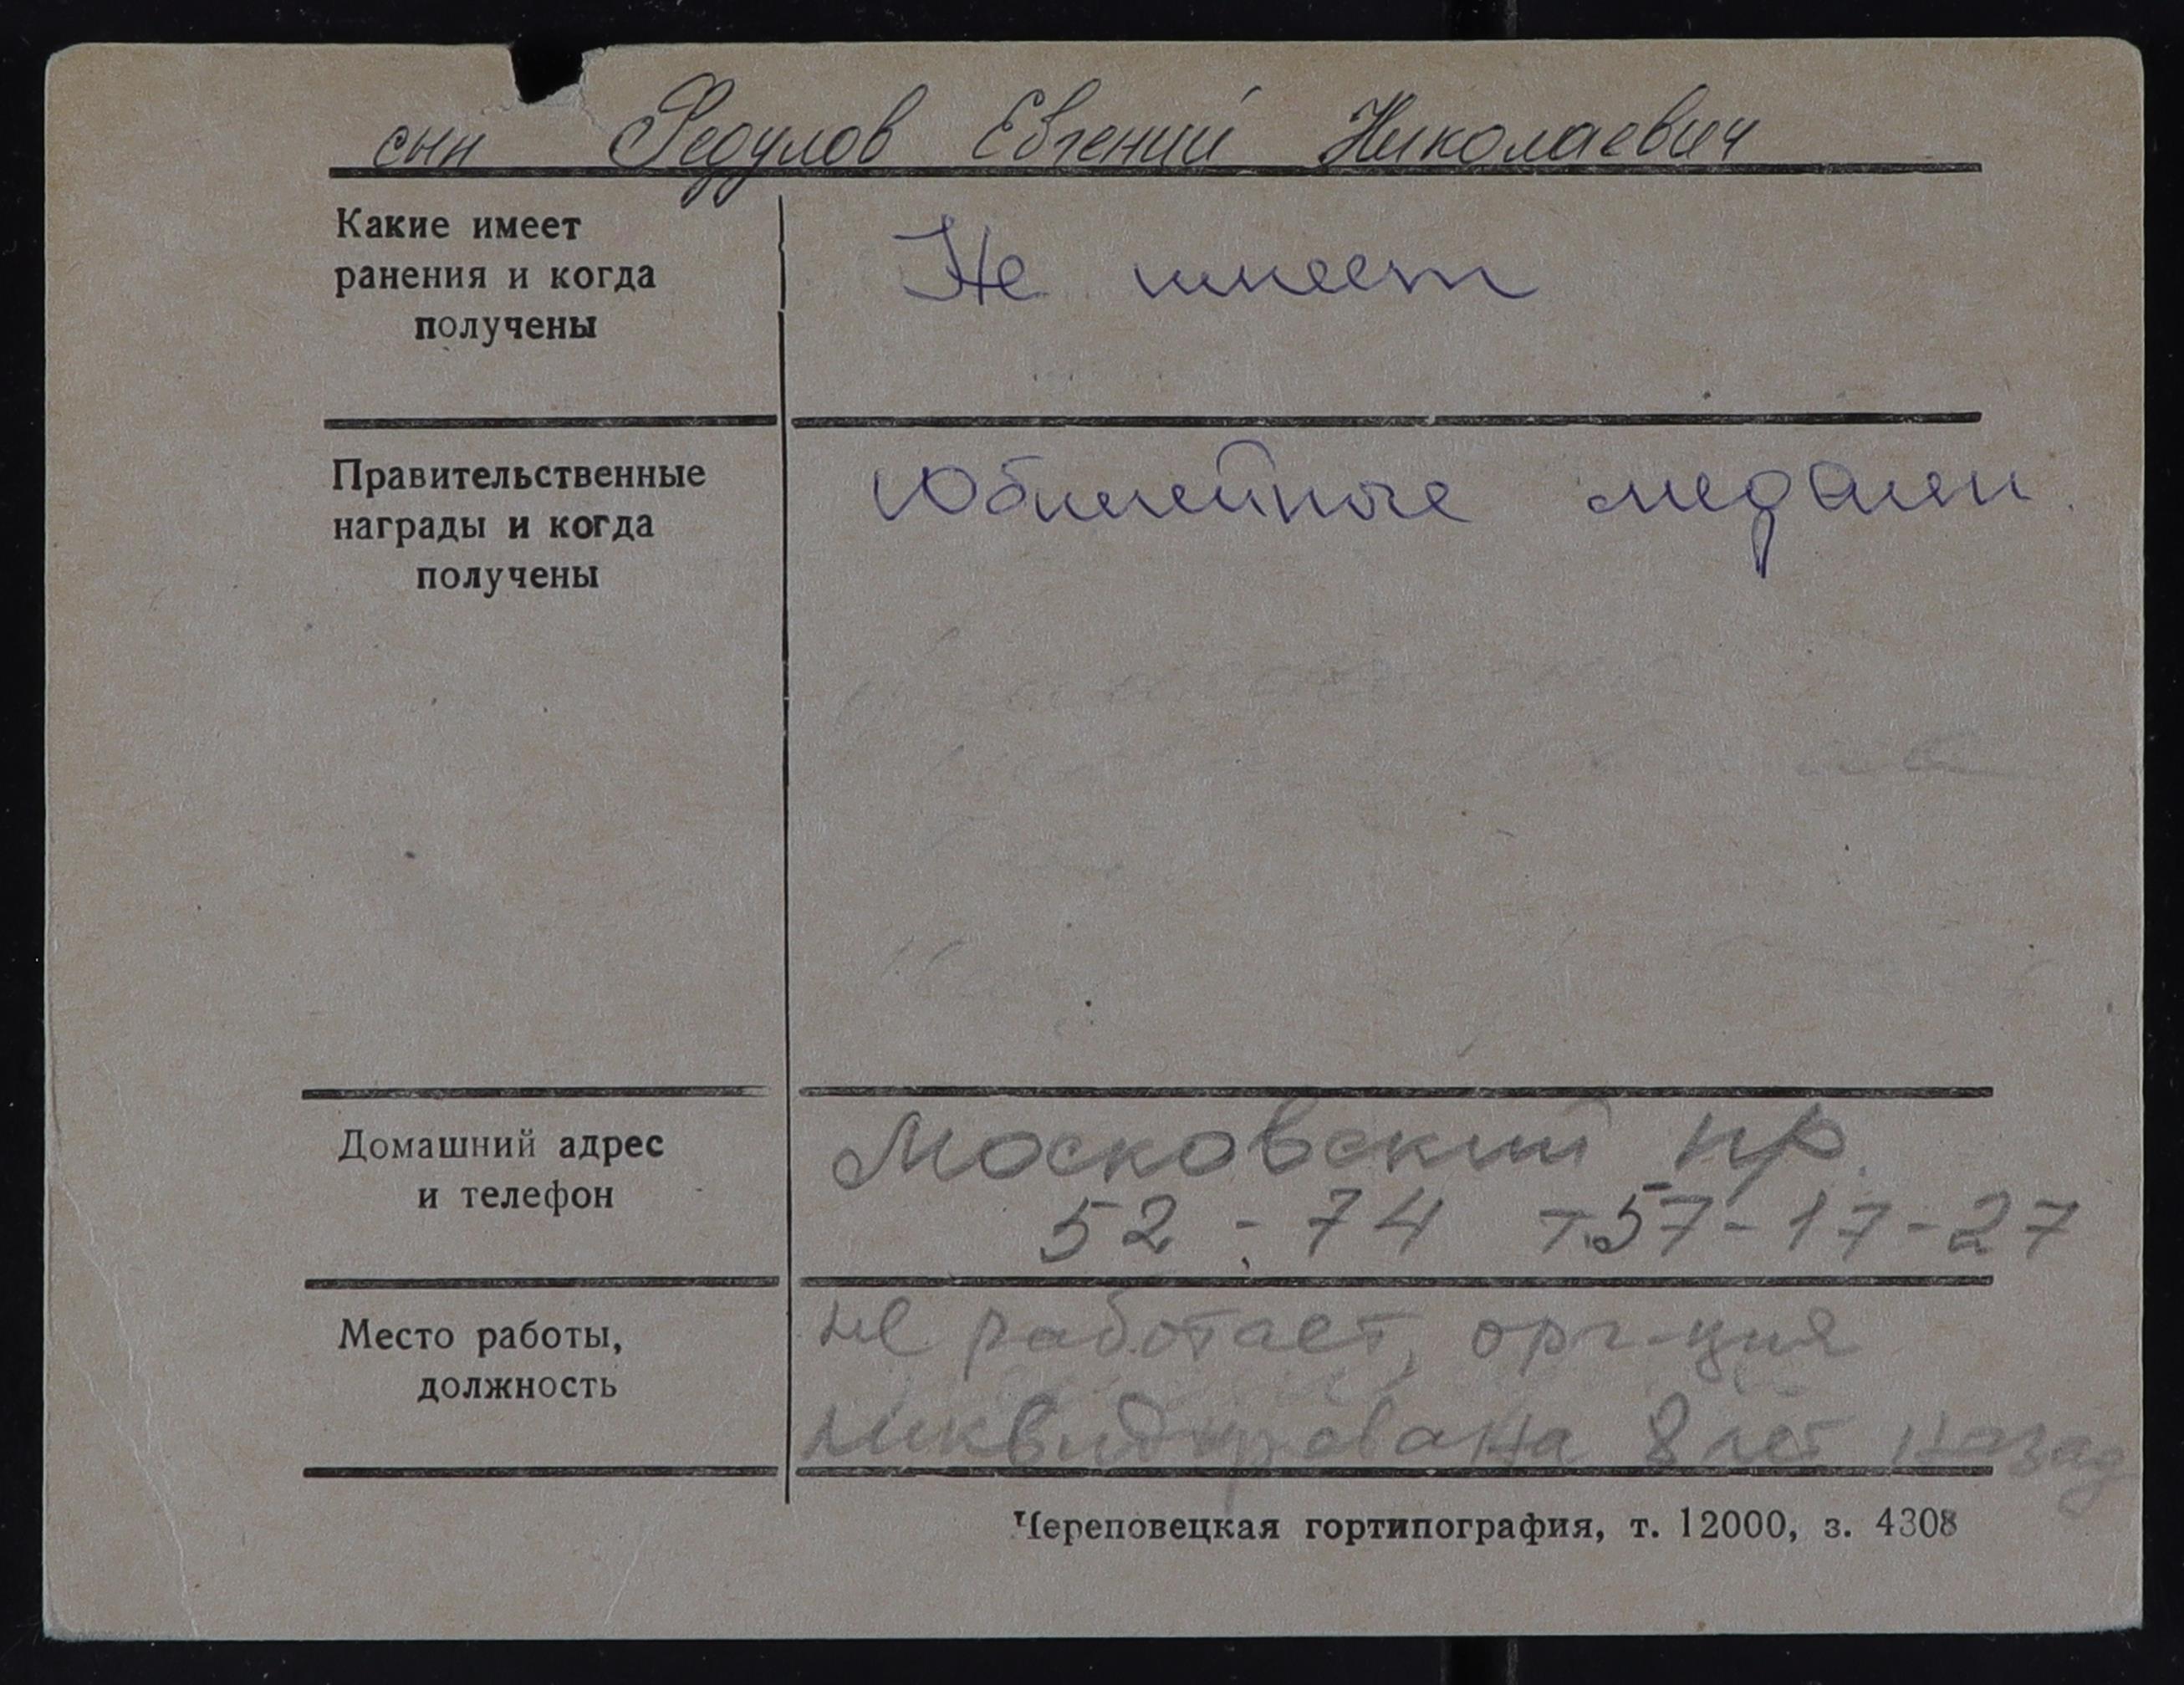 сын Федулов Евгений Николаевич
Какие имеет
ранения и когда
получены
Не имеет
Правительственные
награды и когда
получены
Юбилейные медали.
Домашний адрес
и телефон
Московский пр.
52 - 74 т.57-17-27
Место работы,
должность
не работает, орг-ция
ликвидирована 8 лет назад
Череповецкая гортипография, т. 12000, з. 4308